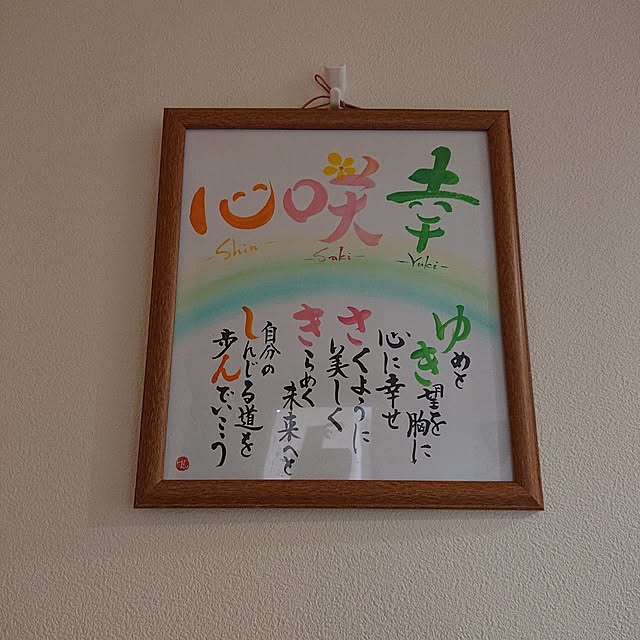 幸
-Yuki-
咲
-Saki-
心
-Shin-
ゆめと
き望を胸に
心に幸せ
さくように
美しく
きらめく
未来へと
自分の
しんじる道を
歩んでいこう